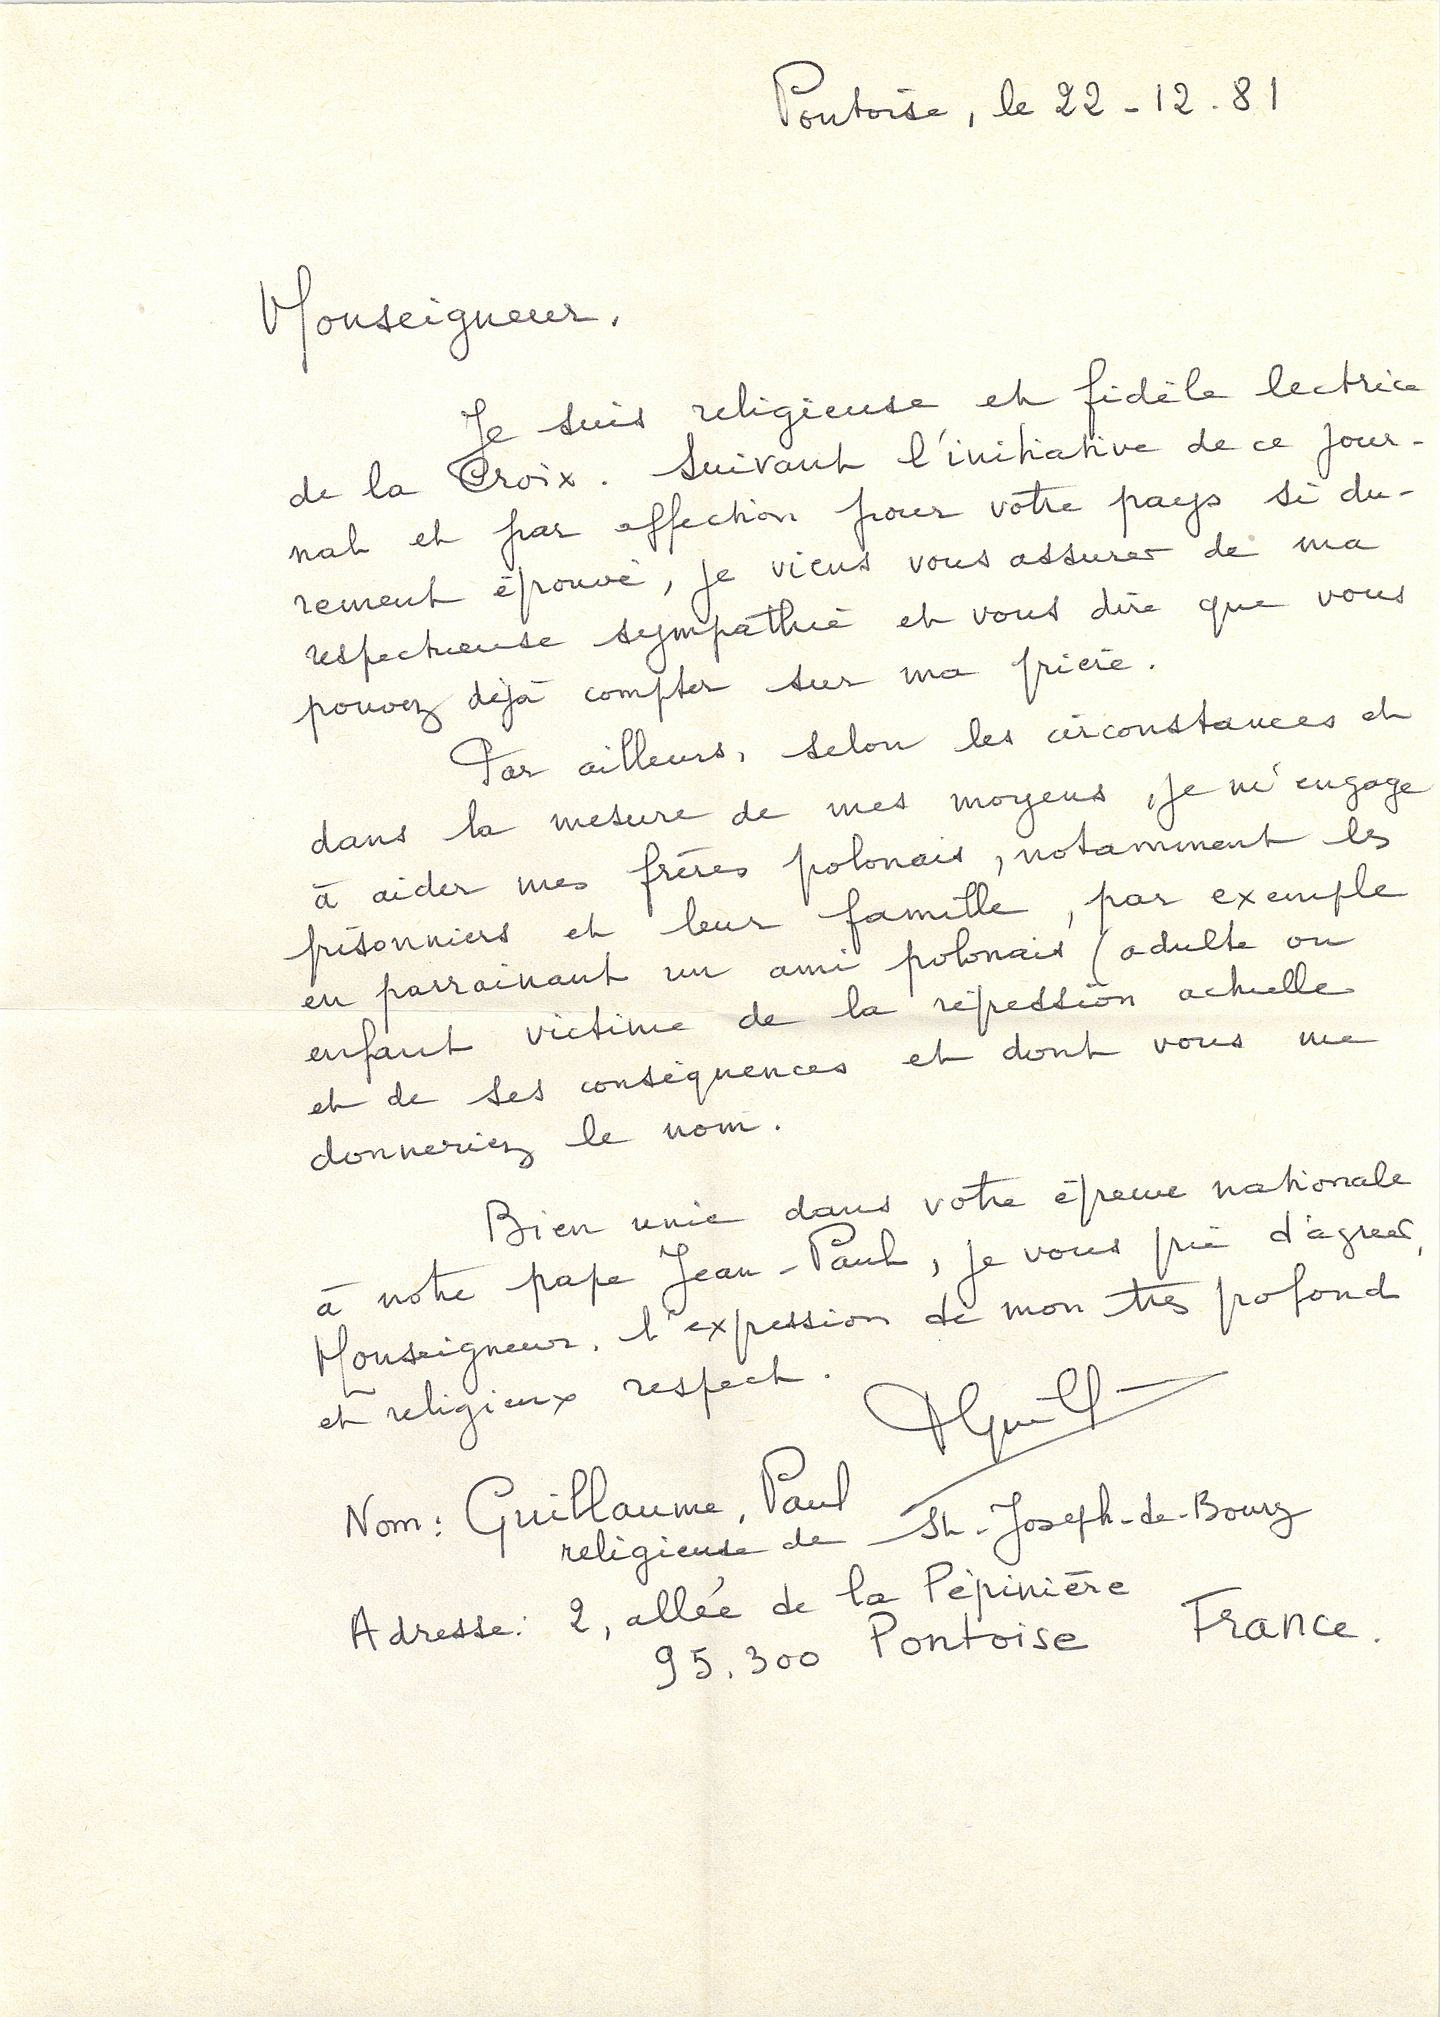 Pontoise, le 22-12.81
Monseigneur.
Je suis religieuse et fidèle lectrice
de la Croix. Suivant l'initiative de ce jour-
nal et par affection pour votre pays si du-
rement éprouvé, je viens vous assurer de ma
respectueuse sympathie et vous dire que vous
pouvez déjà compter sur ma prière.
Par ailleurs, selon les circonstances et
dans la mesure de mes moyens, je m'engage
à aider mes frères polonais, notamment les
prisonniers et leur famille, par exemple
en parrainant un ami polonais (adulte ou
enfant victime de la répression actuelle
et de ses conséquences et dont vous me
donneriez le nom.
Bien unie dans votre épreuve nationale
à notre pape Jean-Paul, je vous prie d'agréer,
Monseigneur, l'expression de mon très profond
et religieux respect.
Nom: Guillaume, Paul
religieuse de St-Joseph-de-Bourg
Adresse: 2, allée de la Pépinière
95.300 Pontoise France.